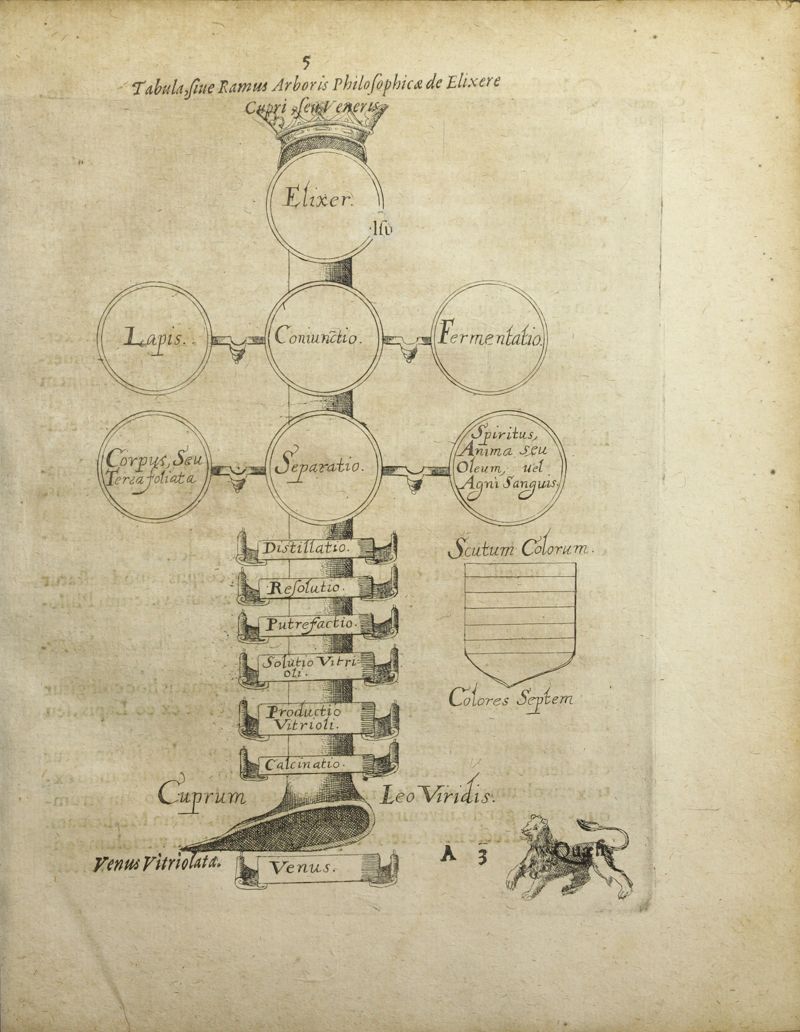 5
Tabula, ſiue Ramus Arboris Philoſophicæ de Elixere
Cupri, ſeu Veneris.
Elixer.
Lapis.
Coniunctio.
Fermentatio.
Corpus, Seu
Terra foliata
Separatio.
Spiritus,
Anima seu
Oleum, uel
Agni Sanguis.
Distillatio.
Reſolutio.
Putrefactio.
Solutio Vitri-
oli.
Productio
Vitrioli.
Calcinatio.
Scutum Colorum.
Colores Septem
Cuprum
Leo Viridis.
Venus Vitriolata.
Venus.
A 3